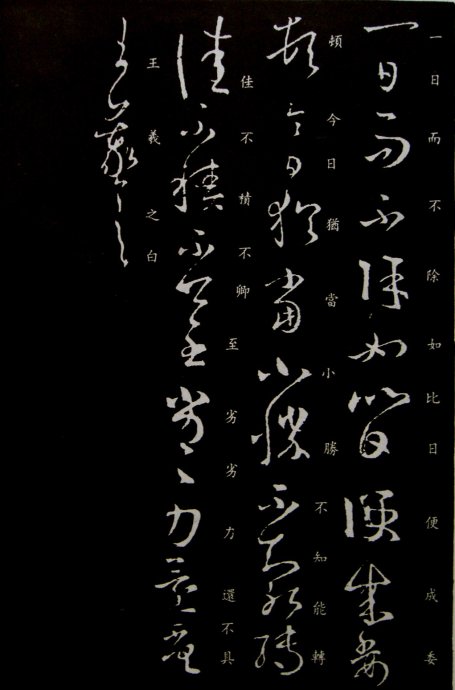 一日而不除如比日便成委
頓今日猶當小勝不知能轉
佳不情不卿至劣劣力還不具
王羲之白